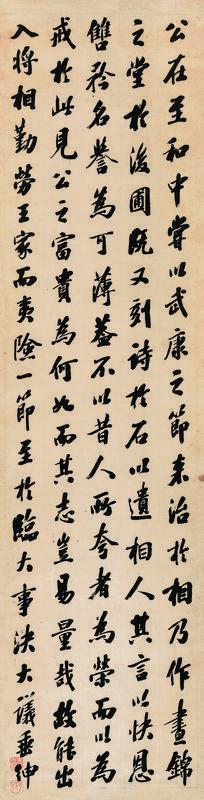 公在至和中嘗以武康之節来治於相乃作晝錦
之堂於後圃既又刻詩於石以遺相人其言以快恩
讐矜名譽為可薄蓋不以昔人所夸者為榮而以為
戒於此見公之富貴為何如而其志豈易量哉故能出
入将相勤勞王家而夷險一節至於臨大事决大議垂紳